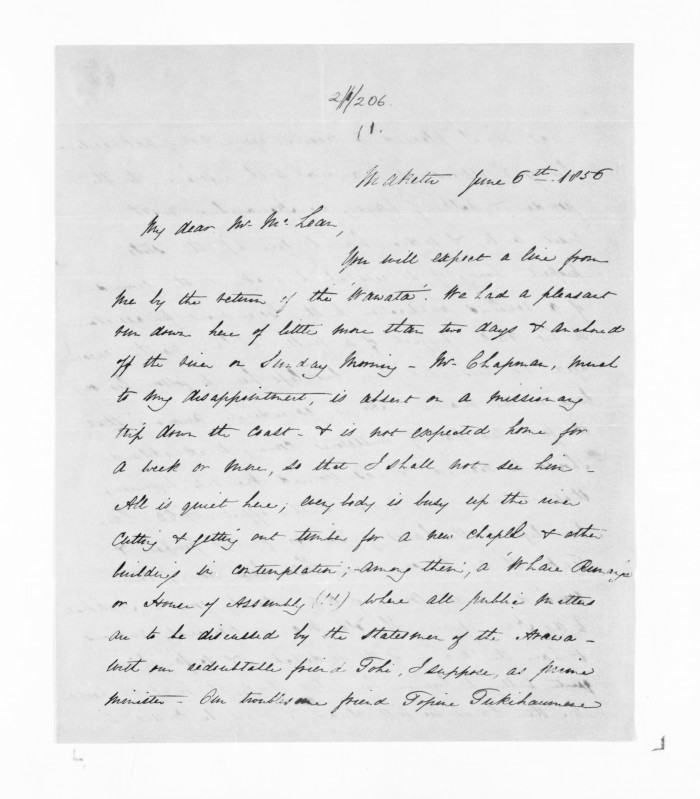 2/1/206.
(1.
Maketu June 6th. 1856
My dear Mr. McLean,
You will expect a line from
me by the return of the 'Wawata'. We had a pleasant
run down here of little more than two days & anchored
off the river on Sunday Morning - Mr. Chapman, much
to my disappointment, is absent on a missionary
trip down the coast - & is not expected home for
a week or more, so that I shall not see him -
All is quiet here; everybody is busy up the river
cutting & getting out timber for a new chapel & other
buildings in contemplation; among them, a 'Whare Runanga
or House of Assembly (!!!) where all public matters
are to be discussed by the Statesmen of the Arawa -
with our redoubtable friend Tohi, I suppose, as prime
minister - Our troublesome friend Topine Tukihaumene